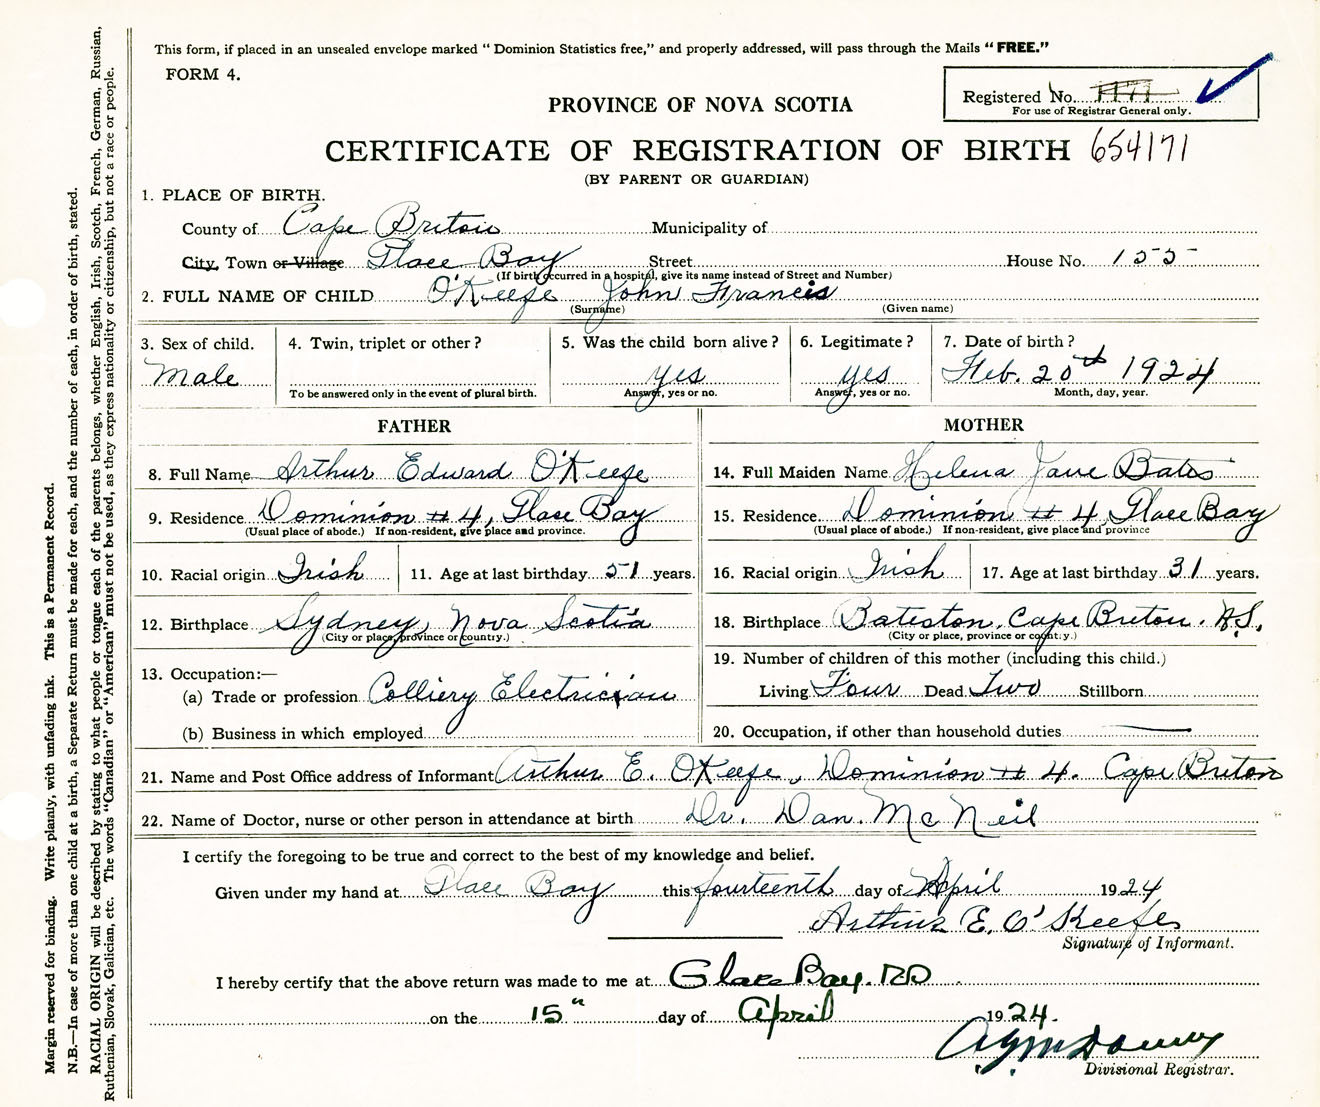 This form, if placed in an unsealed envelope marked "Dominion Statistics free," and properly addressed, will pass through the Mails "FREE."
FORM 4.
Registered No.
For use of Registrar General only.
PROVINCE OF NOVA SCOTIA
CERTIFICATE OF REGISTRATION OF BIRTH 654171
(BY PARENT OR GUARDIAN)
1. PLACE OF BIRTH.
County of Cape Breton Municipality of
City, Town or Village Glace Bay Street House No. 155
(If birth occurred in a hospital, give its name instead of Street and Number)
2. FULL NAME OF CHILD O'Keefe John Francis
(Surname) (Given name)
3. Sex of child. 4. Twin, triplet or other? 5. Was the child born alive? 6. Legitimate? 7. Date of birth?
Male yes yes Feb. 20th 1924
To be answered only in the event of plural birth. Answer, yes or no. Answer, yes or no. Month, day, year.
FATHER MOTHER
8. Full Name Arthur Edward O'Keefe 14. Full Maiden Name Helena Jane Bates
9. Residence Dominion # 4, Glace Bay 15. Residence Dominion # 4, Glace Bay
(Usual place of abode.) If non-resident, give place and province. (Usual place of abode.) If non-resident, give place and province
10. Racial origin Irish 11. Age at last birthday 51 years. 16. Racial origin Irish 17. Age at last birthday 31 years.
12. Birthplace Sydney, Nova Scotia 18. Birthplace Bateston, Cape Breton. N.S.
(City or place, province or country.) (City or place, province or county.)
13. Occupation:— 19. Number of children of this mother (including this child.)
(a) Trade or profession Colliery Electrician Living Four Dead Two Stillborn
(b) Business in which employed 20. Occupation, if other than household duties —
21. Name and Post Office address of Informant Arthur E. O'Keefe, Dominion # 4. Cape Breton
22. Name of Doctor, nurse or other person in attendance at birth Dr. Dan. McNeil
I certify the foregoing to be true and correct to the best of my knowledge and belief.
Given under my hand at Glace Bay this fourteenth day of April 1924
Arthur E. O'Keefe
Signature of Informant.
I hereby certify that the above return was made to me at Glace Bay. RD
on the 15" day of April 1924.
Divisional Registrar.
Margin reserved for binding. Write plainly, with unfading ink. This is a Permanent Record.
N.B.—In case of more than one child at a birth, a Separate Return must be made for each, and the number of each, in order of birth, stated.
RACIAL ORIGIN will be described by stating to what people or tongue each of the parents belongs, whether English, Irish, Scotch, French, German, Russian,
Ruthenian, Slovak, Galician, etc. The words "Canadian" or "American" must not be used, as they express nationality or citizenship, but not a race or people.